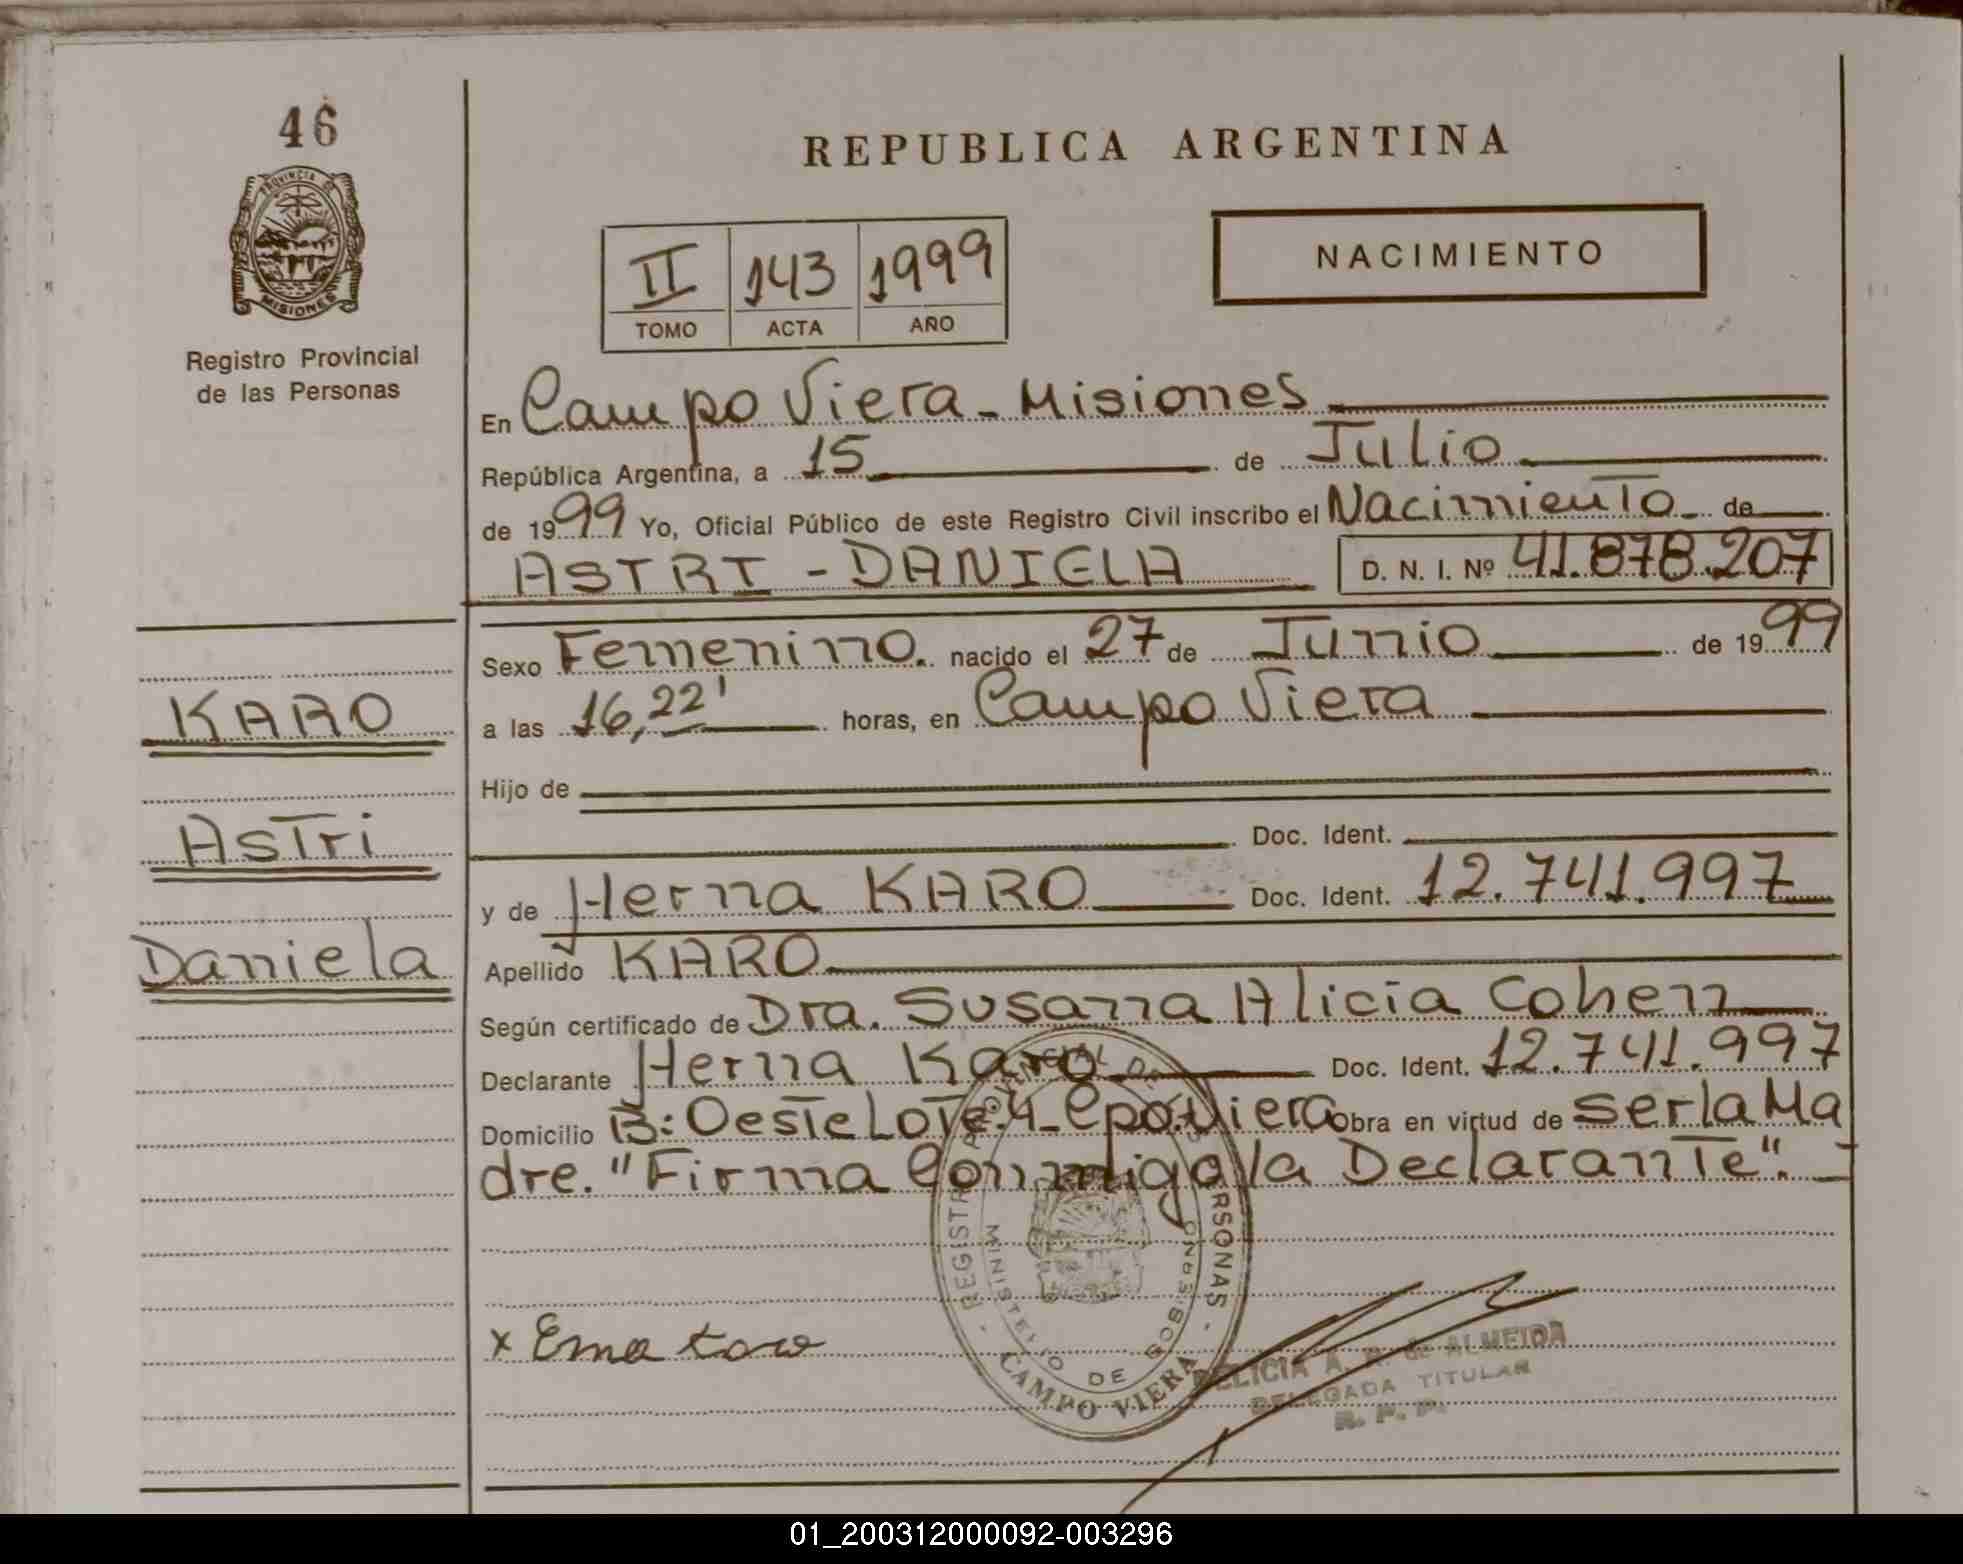 46
PROVINCIA DE
MISIONES
Registro Provincial
de las Personas
REPUBLICA ARGENTINA
NACIMIENTO
II 143 1999
TOMO ACTA AÑO
En Campo Viera - Misiones
República Argentina, a 15 de Julio
de 1999 Yo, Oficial Público de este Registro Civil inscribo el Nacimiento de
ASTRI - DANIELA D. N. I. Nº 41.878.207
Sexo Femenino. nacido el 27 de Junio de 1999
a las 16,22' horas, en Campo Viera
Hijo de
Doc. Ident.
y de Herna KARO Doc. Ident. 12.741.997
Apellido KARO
Según certificado de Dra. Susana Alicia Cohen
Declarante Herna Karo Doc. Ident. 12.741.997
Domicilio B: Oeste Lote: 4 - Cpo. Viera Obra en virtud de ser la Ma
dre. "Firma Conmigo la Declarante". -
KARO
Astri
Daniela
REGISTRO PROVINCIAL DE LAS PERSONAS
MINISTERIO DE GOBIERNO
CAMPO VIERA
x Ema karo
DELICIA A. de ALMEIDA
DELEGADA TITULAR
R. P. P.
01_200312000092-003296